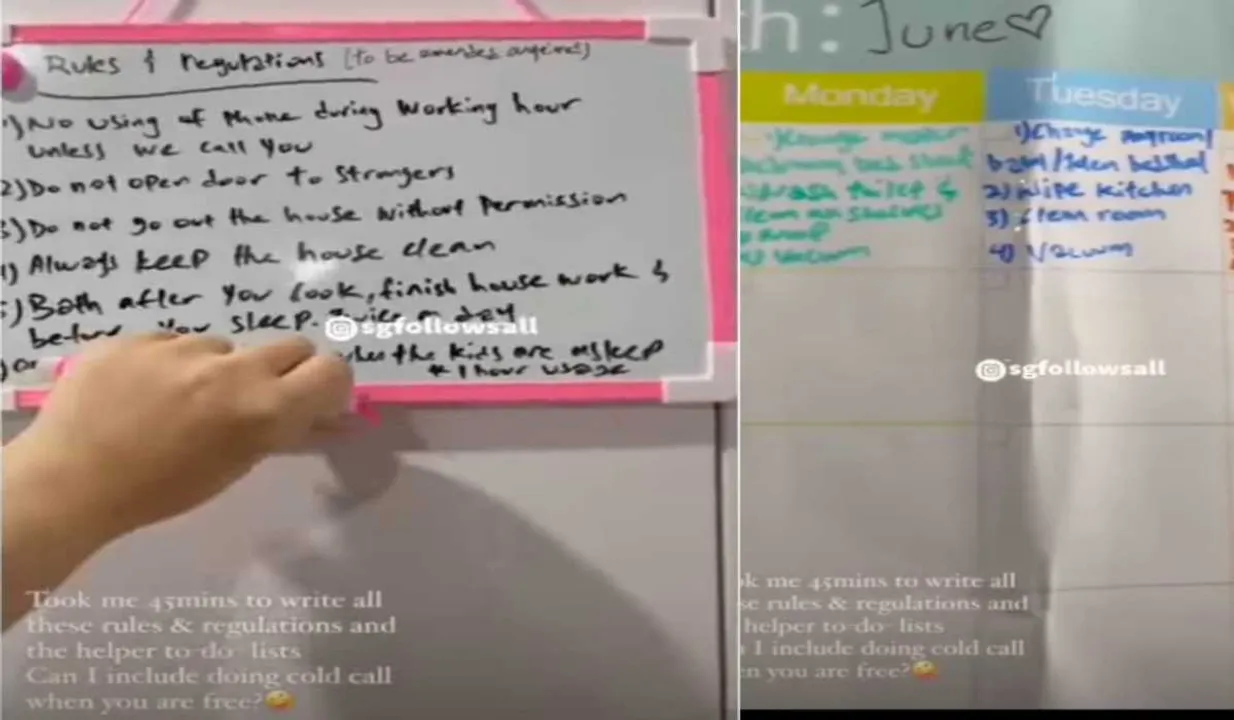 Rules & Regulations (to be amended
1) No using of phone during working hour
unless we call you
2) Do not open door to strangers
3) Do not go out the house without permission
4) Always keep the house clean
5) Bath after you cook, finish house work &
before you sleep. Twice a day
when the kids are asleep
* 1 hour usage
sgfollowsall
Took me 45mins to write all
these rules & regulations and
the helper to-do- lists
Can I include doing cold call
when you are free?🤪
h: June♡
Monday
Tuesday
toilet &
Vacuum
1) Change
2) Wipe kitchen
3) Clean room
4) Vacuum
sgfollowsall
k me 45mins to write all
se rules & regulations and
helper to-do- lists
I include doing cold call
en you are free?🤪